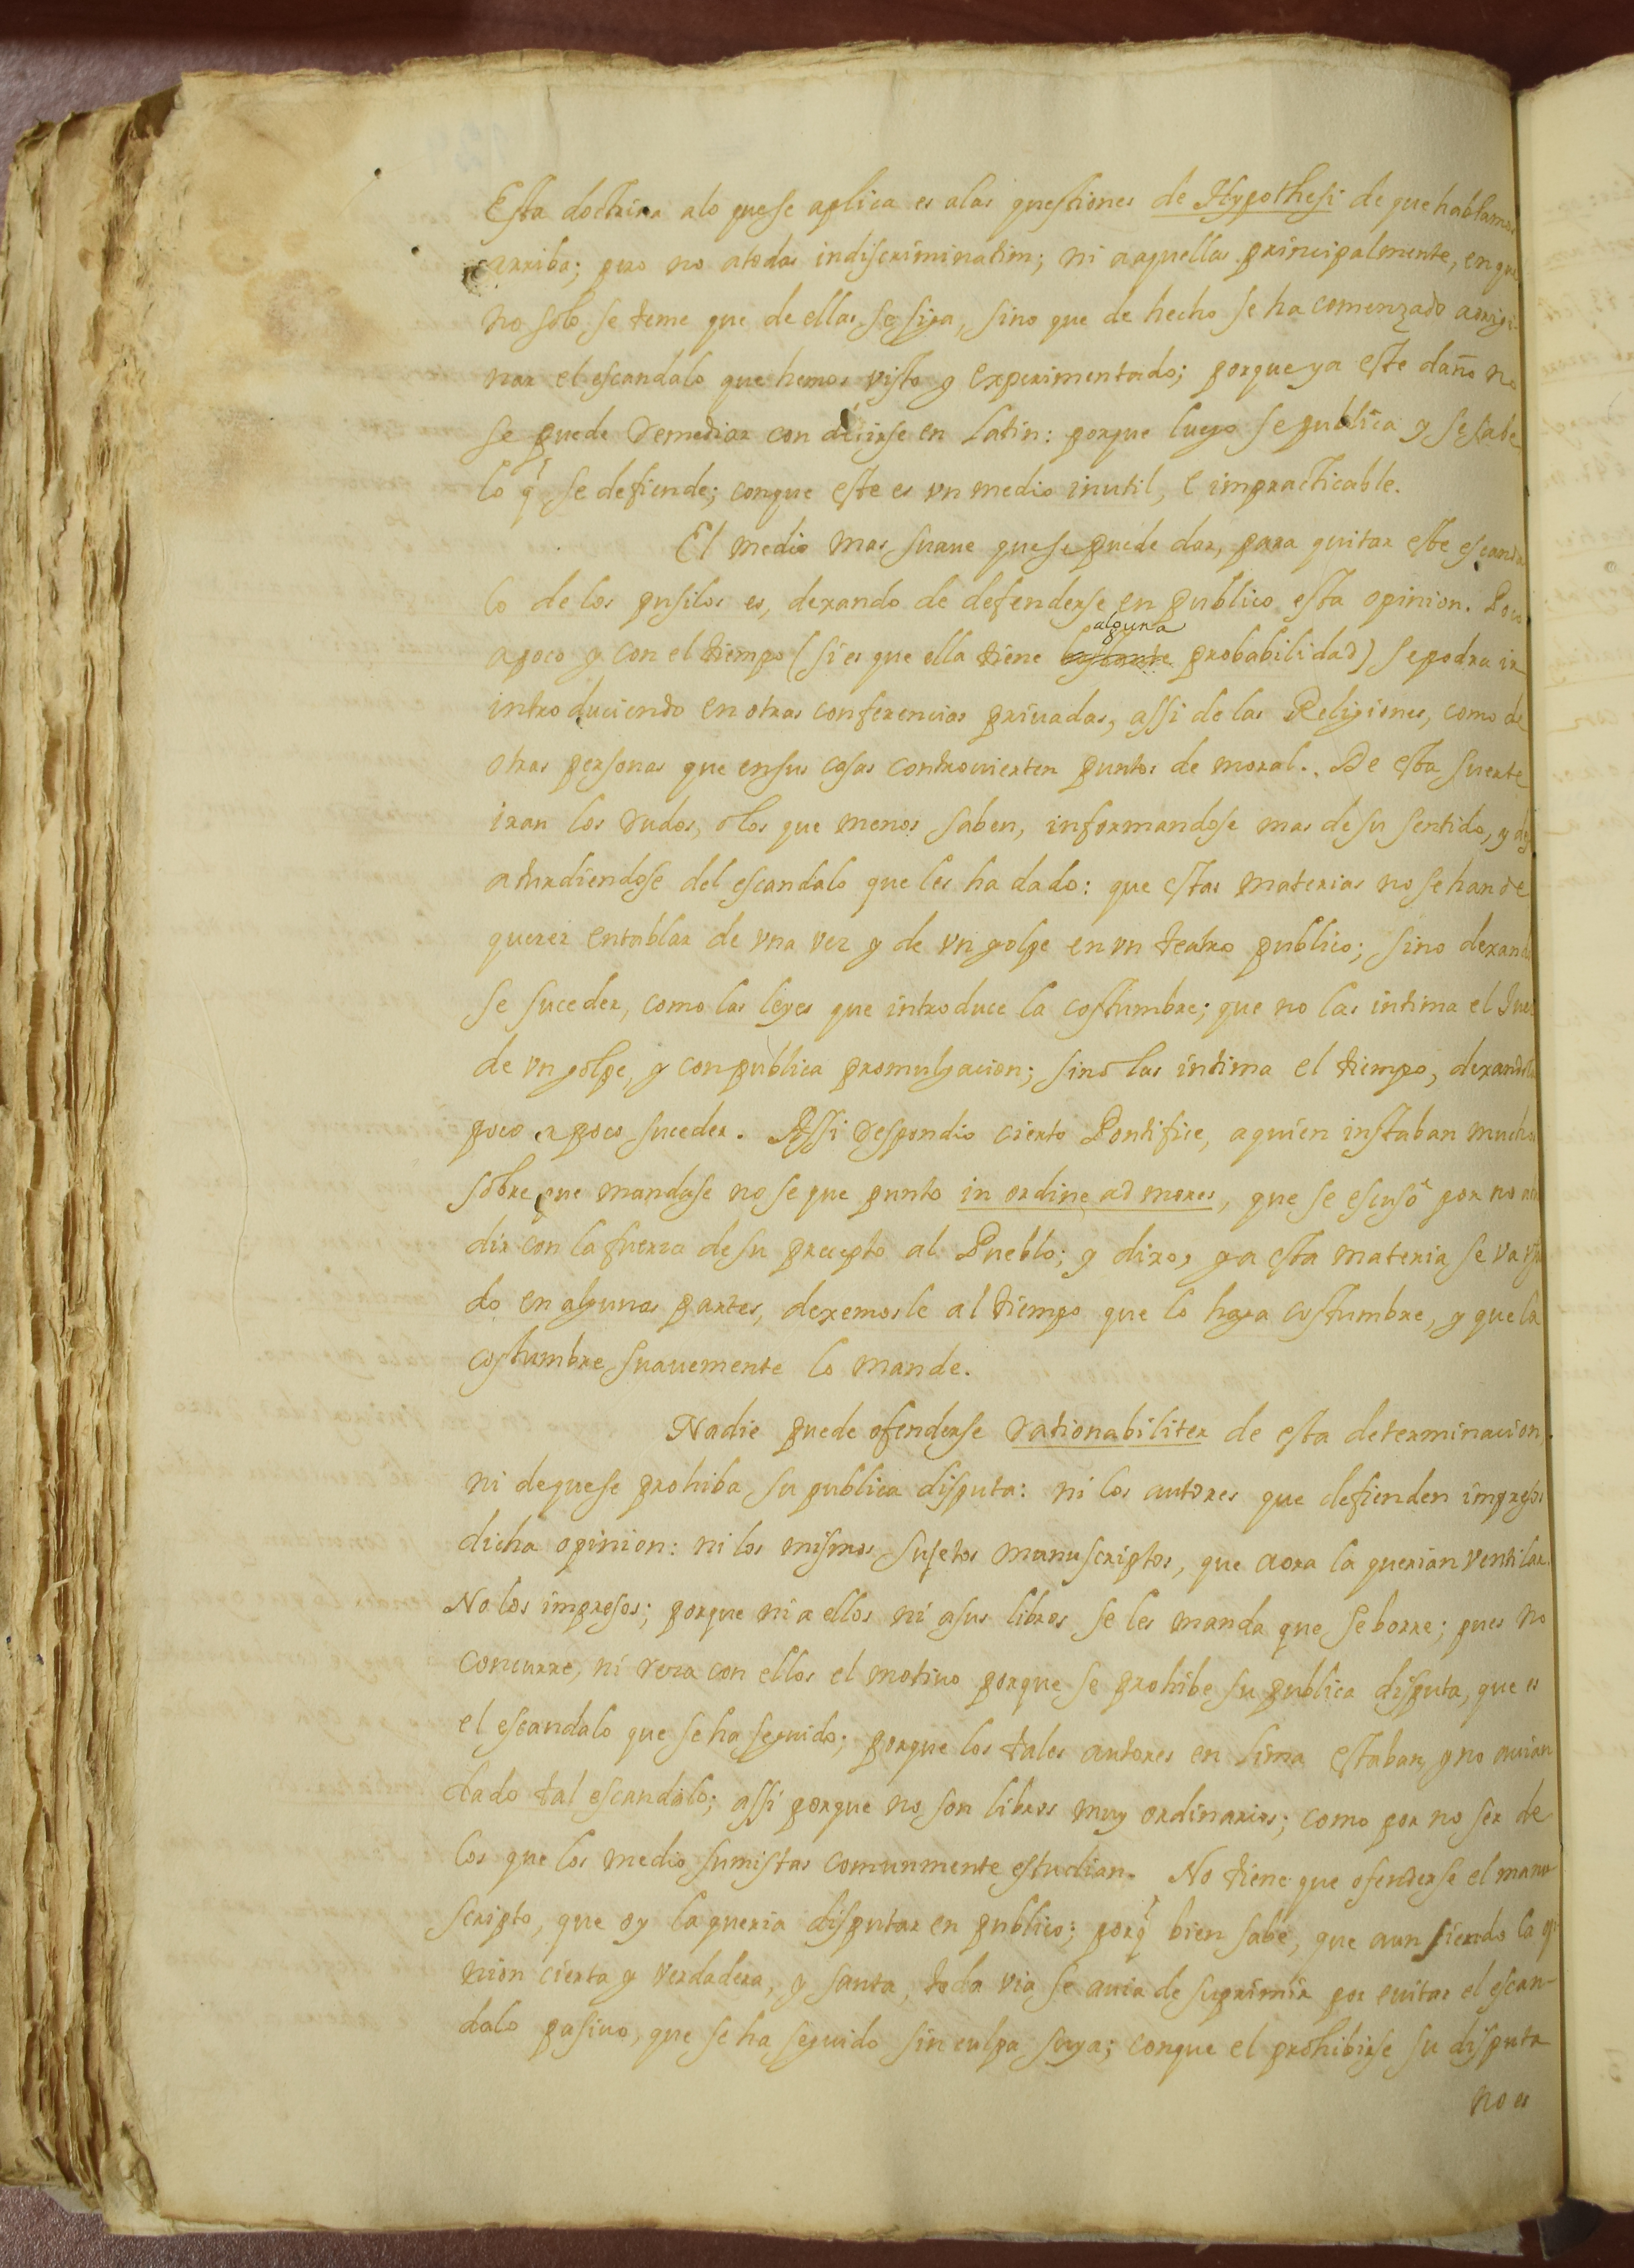 Esta doctrina alo quese aplica es alas questiones de Hypothesi de que hablamos
arriba; pero no atodas indiscriminatim; ni aaquellas principalmente, en que
no solo se teme que de ellas se siga, sino que de hecho se ha comenzado aorigi-
nar el escandalo que hemos visto y experimentado; porque ya este daño no
se puede remediar con decirse en latin: porque luego se publica y se sabe
lo q̃ se defiende; conque este es vn medio inutil, e impracticable.
El medio mas suaue quese puede dar, para quitar este escanda
lo de los pusilos es, dexando de defenderse en publico esta opinion. Poco
apoco y con el tiempo (si es que ella tiene alguna probabilidad) sepodra ir
introduciendo en otras conferencias priuadas, assi de las Religiones, como de
otras personas que ensus casas controuierten puntos de moral. De esta suerte
iran los rudos, olos que menos saben, informandose mas desu sentido, y des
aturdiendose del escandalo que les ha dado: que estas materias no se han de
querer entablar de vna vez y de vn golpe en vn teatro publico; sino dexando
se suceder, como las leyes que introduce la costumbre; que no las intima el Juez
de vn golpe, y con publica promulgacion; sino las intima el tiempo, dexandolas
poco apoco suceder. Assi respondio cierto Pontifice, aquien instaban mucho
sobre que mandase no se que punto in ordine ad mores, que se escusò por no
dir con la fuerza desu precepto al Pueblo; y dixo, ya esta materia se va vsan
do en algunas partes, dexemosle al tiempo que lo haga costumbre, y que la
costumbre suauemente lo mande.
Nadie puede ofenderse rationabiliter de esta determinacion,
ni dequese prohiba su publica disputa: ni los autores que defienden impresos
dicha opinion: ni los mismos sujetos manuscriptos, que aora la querian ventilar.
No los impresos; porque ni a ellos ni asus libros se les manda que se borre; pues no
concurre, ni reza con ellos el motiuo porque se prohibe su publica disputa, que es
el escandalo que se ha seguido; porque los tales autores en Lima estaban, y no auian
dado tal escandalo; assi porque no son libros muy ordinarios; como por no ser de
los que los medio sumistas comunmente estudian. No tiene que ofenderse el manu-
scripto, que oy la queria disputar en publico; porq̃ bien sabe, que aun siendo la opi
nion cierta y verdadera, y santa, toda via se auia de suprimir por euitar el escan-
dalo pasiuo, que se ha seguido sin culpa suya; conque el prohibirse su disputa
no es